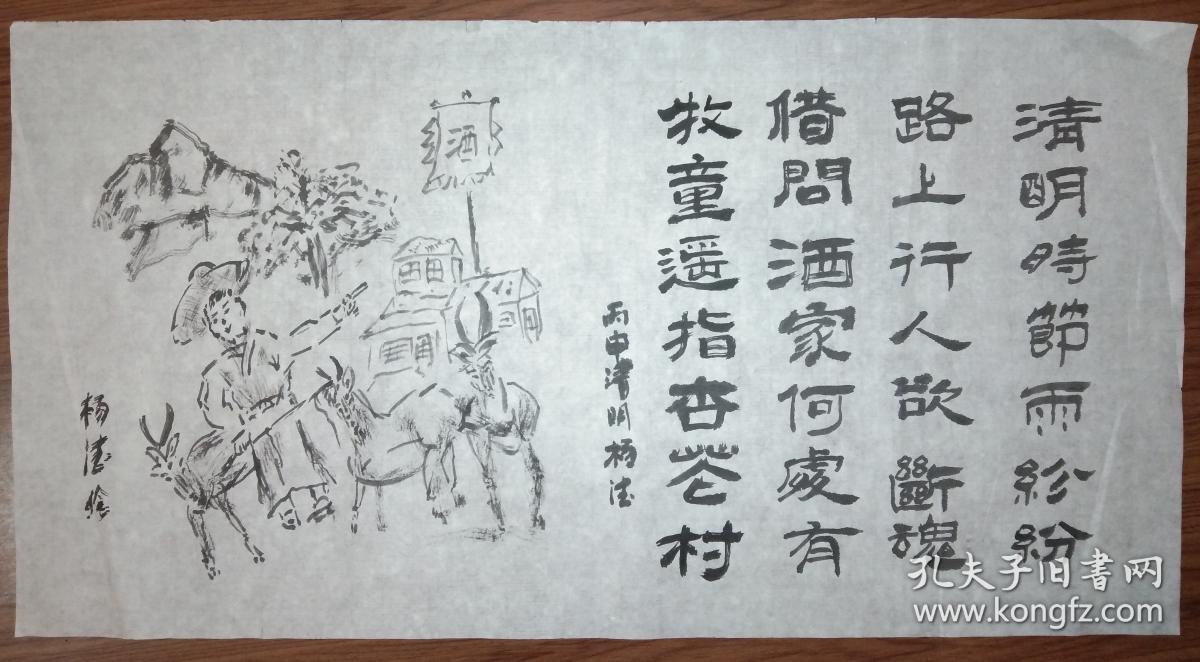 清明時節雨紛紛
路上行人欲斷魂
借問酒家何處有
牧童遥指杏花村
丙申清明楊法
酒
孔夫子旧書网
www.kongfz.com